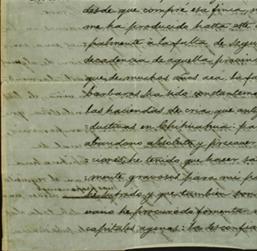 desde que compré esa finca, n
me ha producido hasta este
palmente á la falta de segu
decadencia de aquella provin
que de muchos años acá la fa
barbaros ha sido constanteme
las haciendas de cria que ante
ductivas en Chihuahua: po
abandono absoluto y precaver
ciones he tenido que hacer sa
mente gravosos para mi pa
he sufrido y que tambien son
vano he procurado fomentar a
capitales agenos: la desconfia